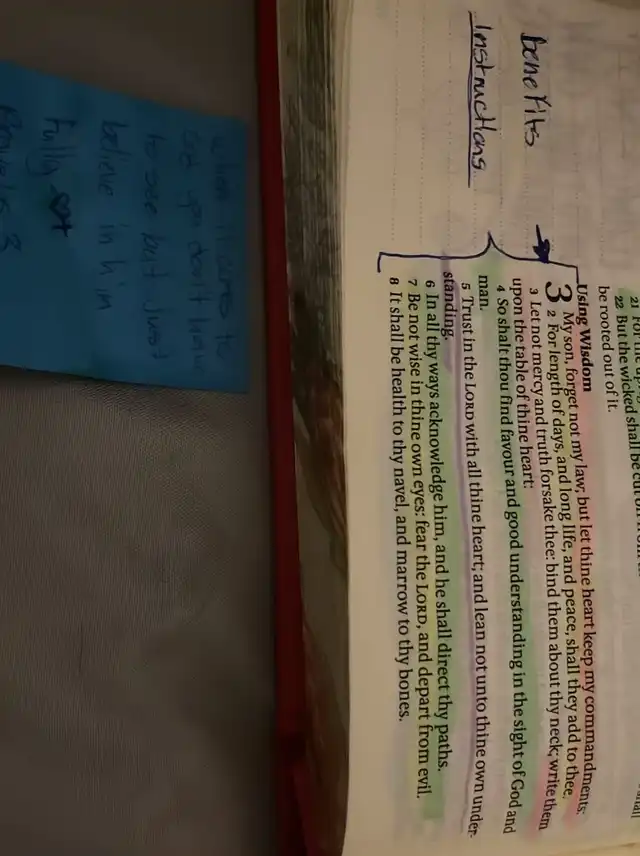 benefits
Instructions
22 But the wicked shall be cut
be rooted out of it.
Using Wisdom
3 My son, forget not my law; but let thine heart keep my commandments:
2 For length of days, and long life, and peace, shall they add to thee.
3 Let not mercy and truth forsake thee: bind them about thy neck; write them
upon the table of thine heart:
4 So shalt thou find favour and good understanding in the sight of God and
man.
5 Trust in the LORD with all thine heart; and lean not unto thine own under-
standing.
6 In all thy ways acknowledge him, and he shall direct thy paths.
7 Be not wise in thine own eyes: fear the LORD, and depart from evil.
8 It shall be health to thy navel, and marrow to thy bones.
to
God you don't
to see but Just
believe in him
fully
Proverbs 3